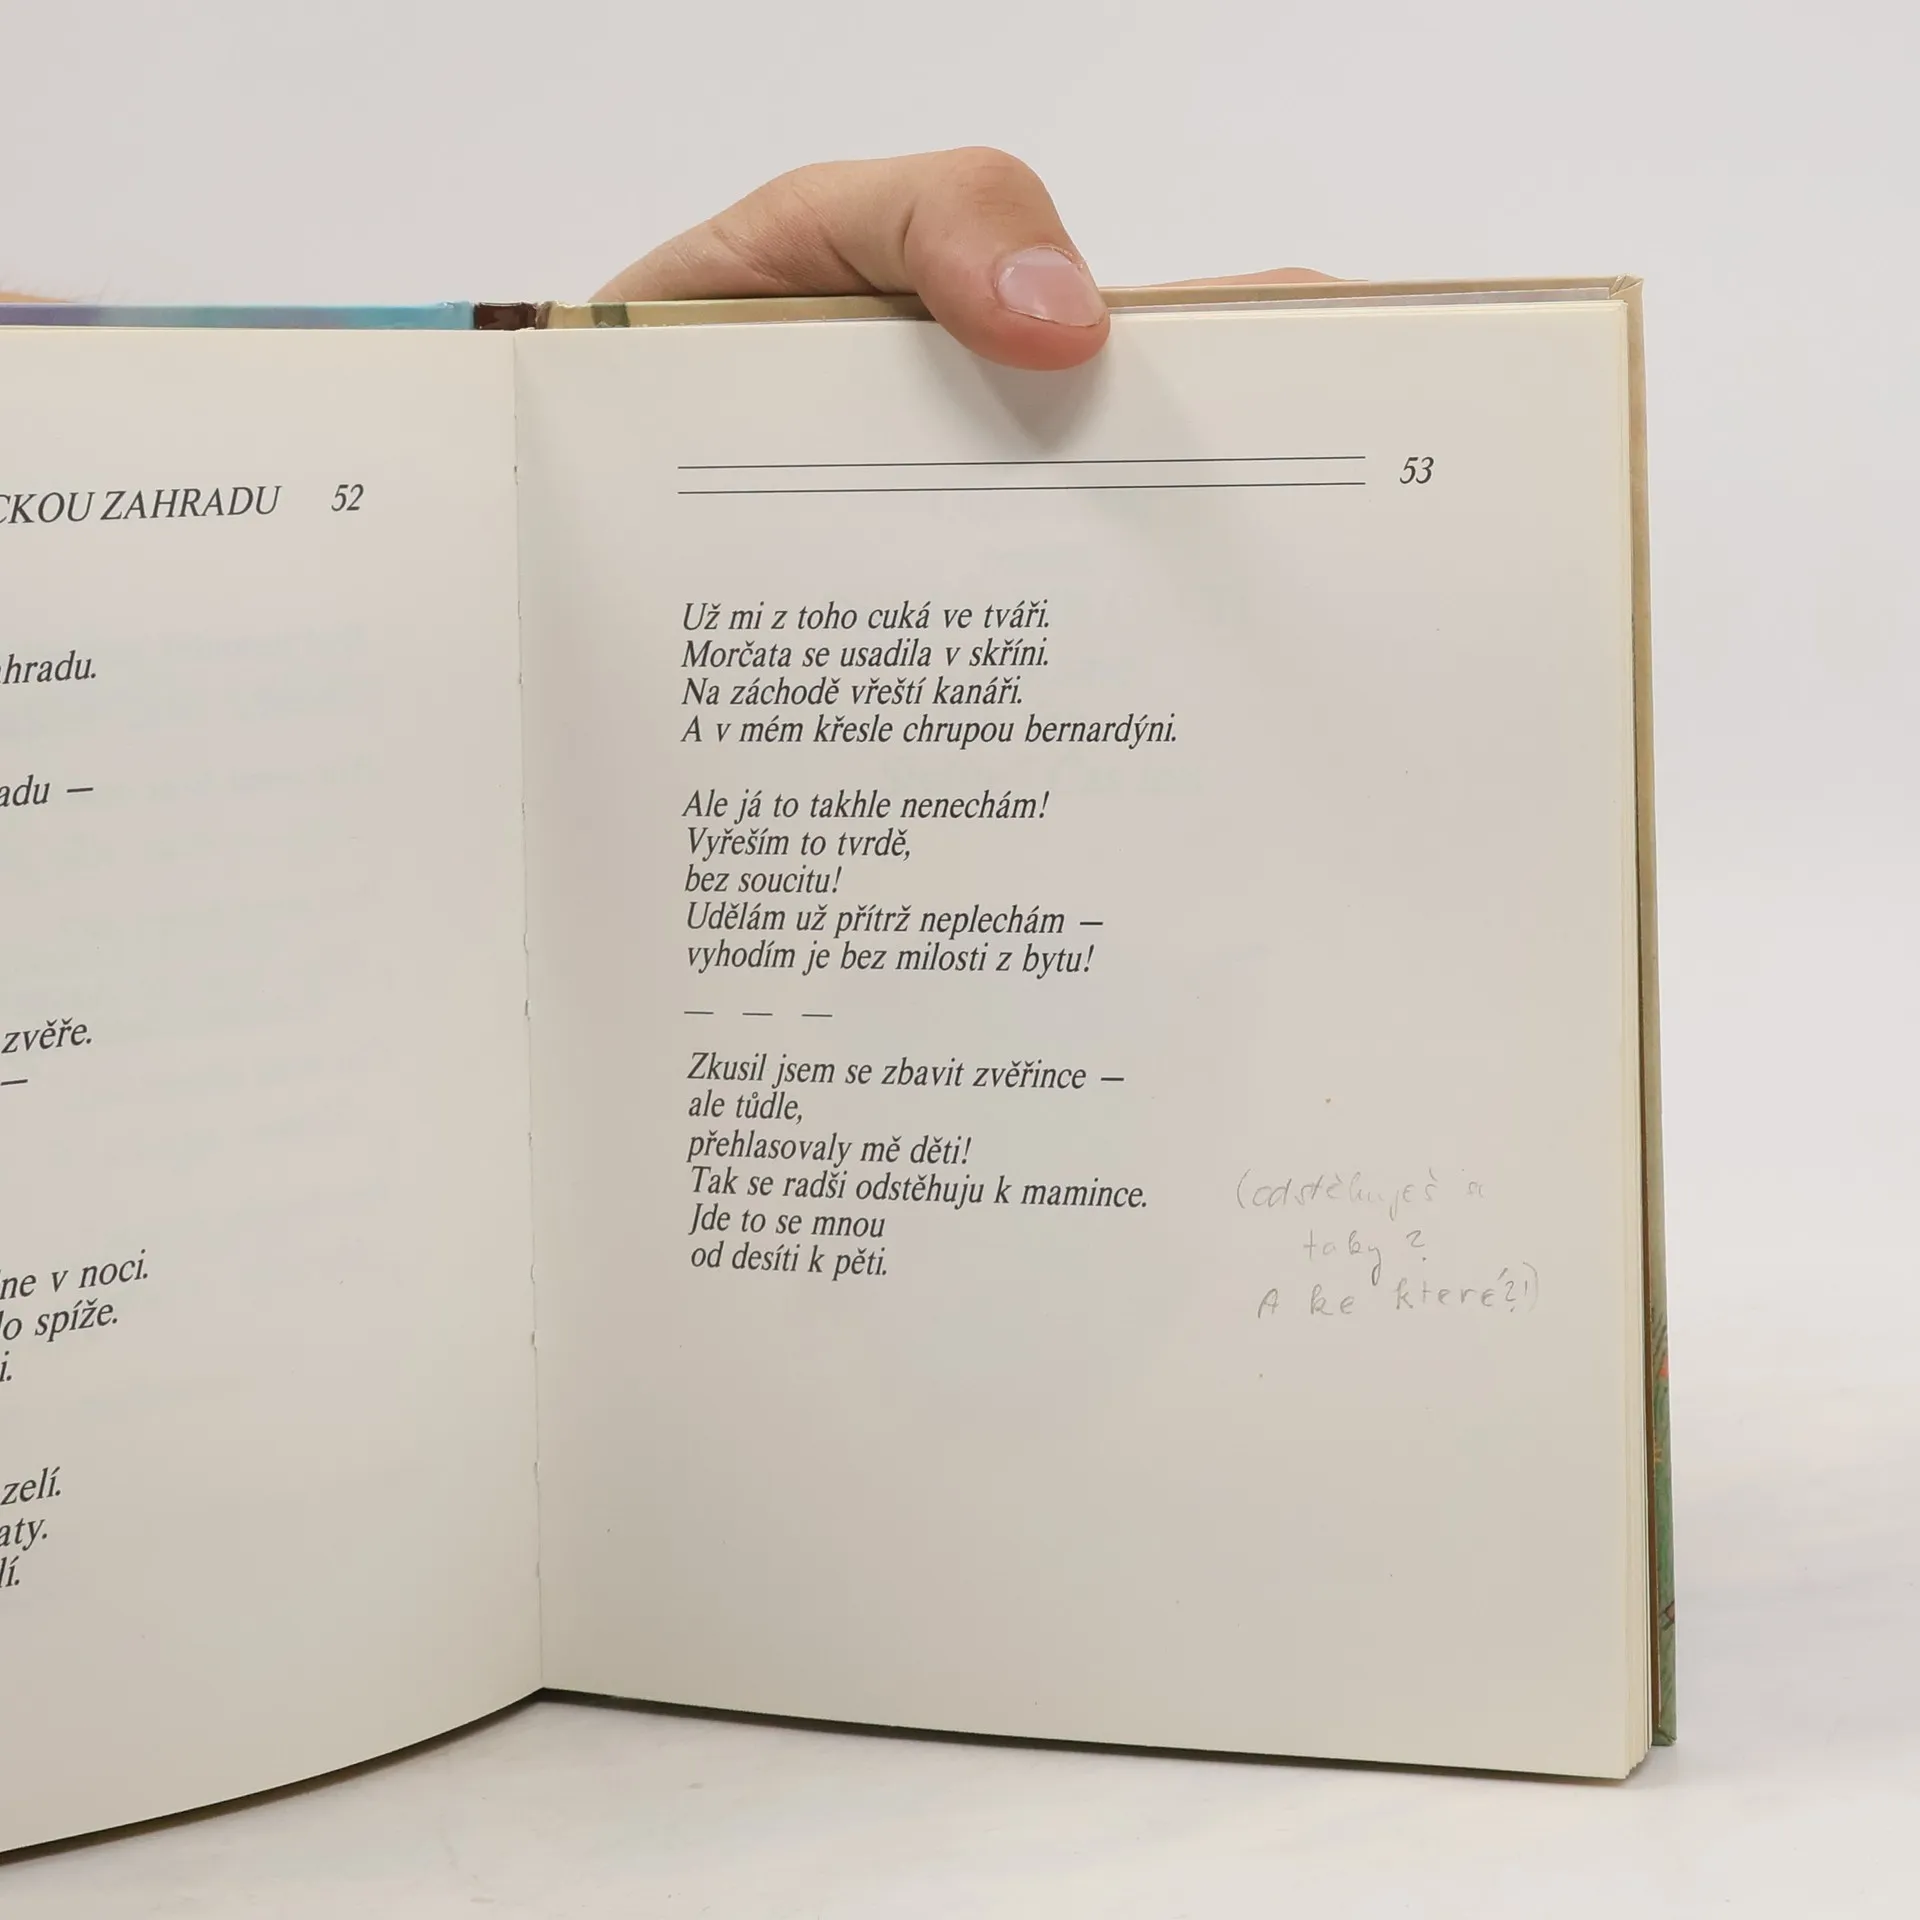 CKOU ZAHRADU 52
ahradu.
adu —
zvěře.
—
ne v noci.
lo spíže.
i.
zelí.
aty.
lí.
53
Už mi z toho cuká ve tváři.
Morčata se usadila v skříni.
Na záchodě vřeští kanáři.
A v mém křesle chrupou bernardýni.
Ale já to takhle nenechám!
Vyřeším to tvrdě,
bez soucitu!
Udělám už přítrž neplechám —
vyhodím je bez milosti z bytu!
— — —
Zkusil jsem se zbavit zvěřince —
ale tůdle,
přehlasovaly mě děti!
Tak se radši odstěhuju k mamince.
Jde to se mnou
od desíti k pěti.
(odstěhuješ
taby ?
A ke které?!)